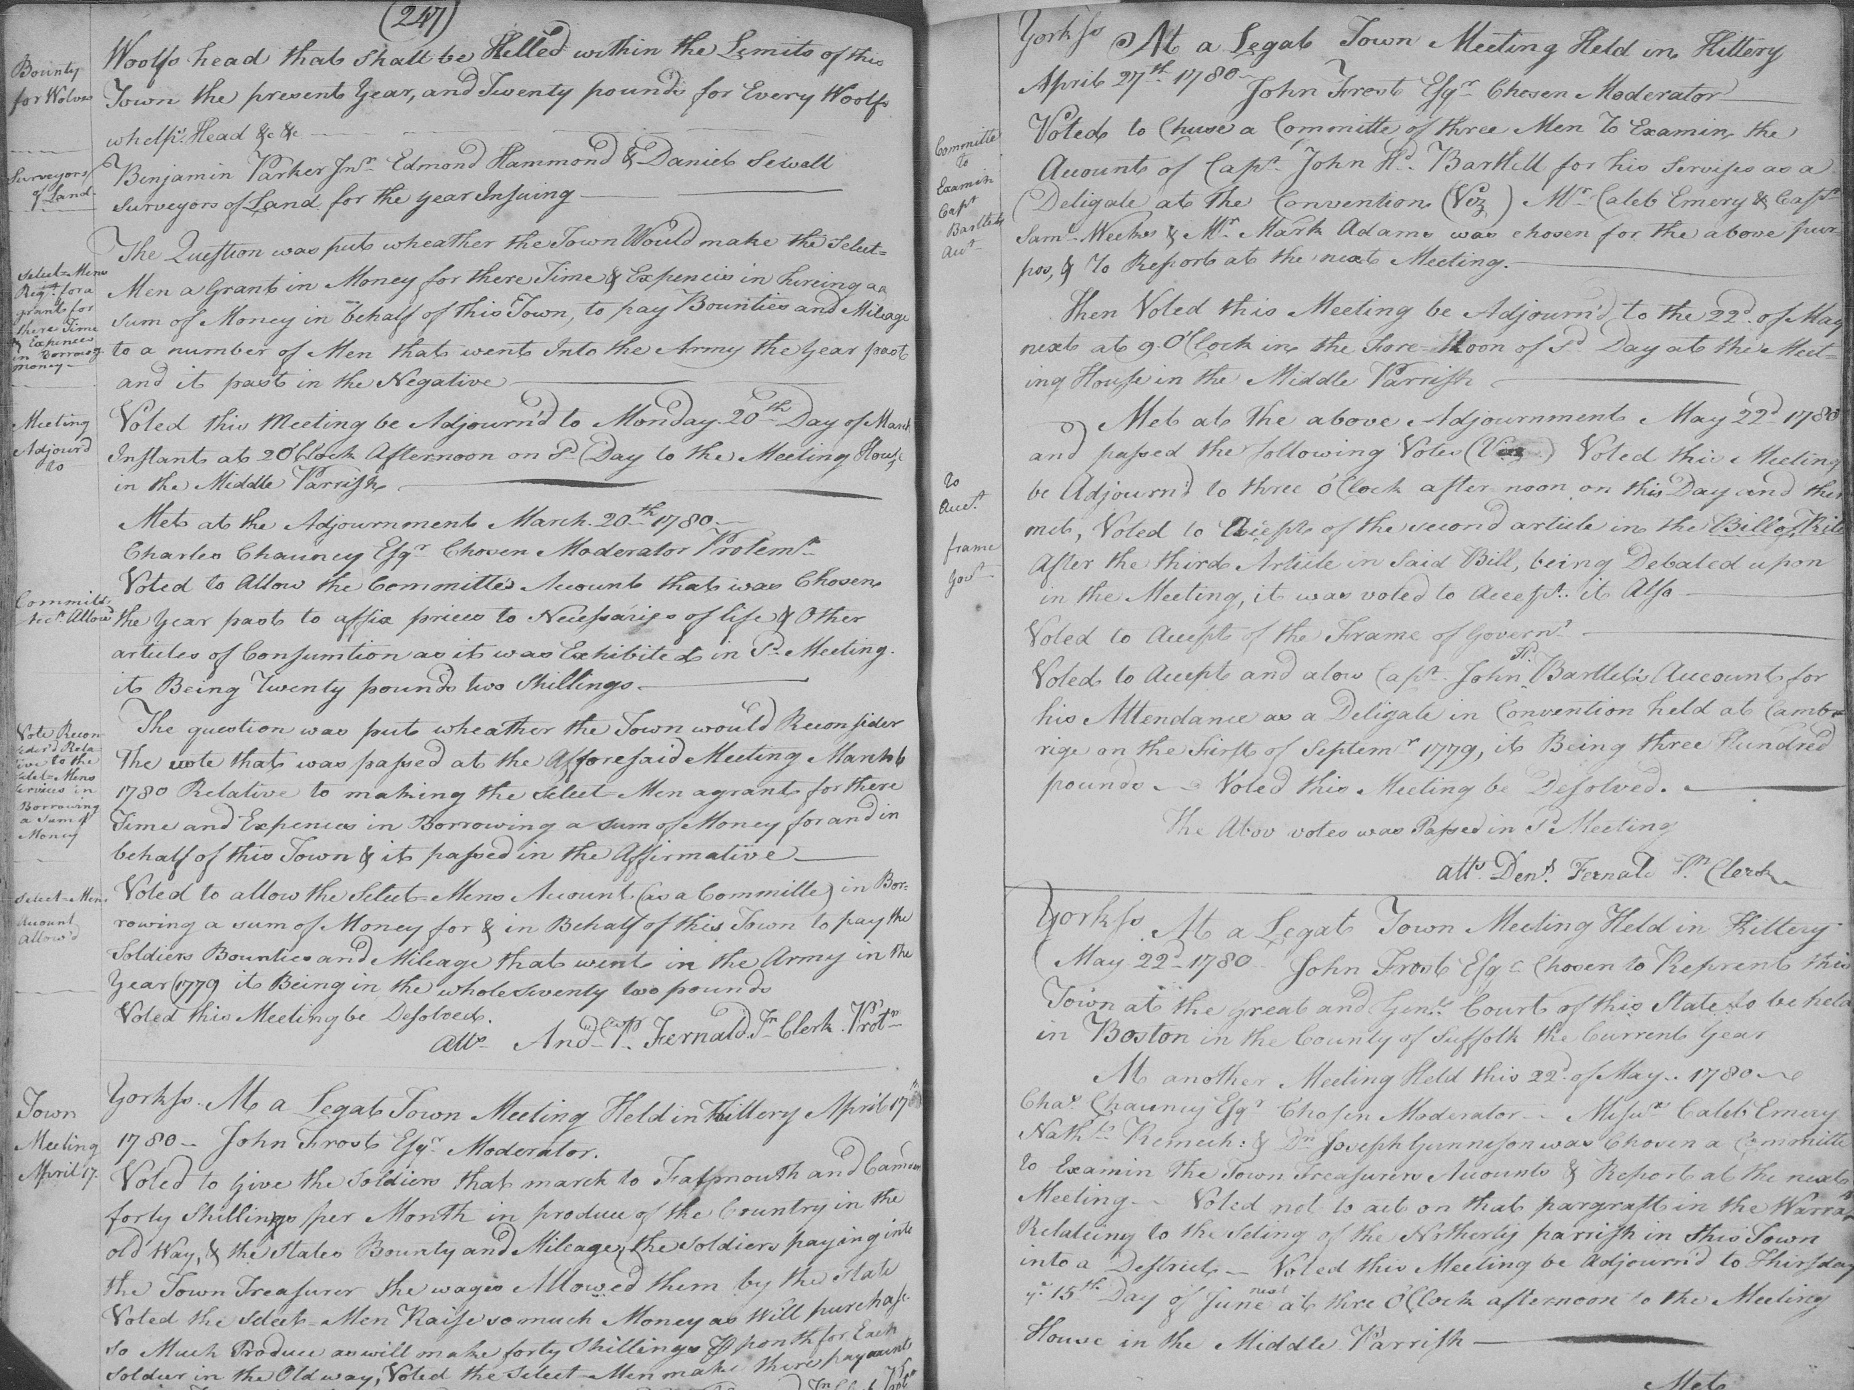 (247)
Bounty
for Wolves
Woolfs head that Shall be Killed within the Limits of this
Town the present Year, and Twenty pounds for Every Woolfs
whelps Head &c &c
Surveyors
of Land
Benjamin Parker Jnr Edmond Hammond & Daniel Sewall
Surveyors of Land for the year Insuing
Select=Mens
Reqst for a
grant for
there Time
& Expences
in Borrowg
money
The Question was put wheather the Town Would make the Select=
Men a Grant in Money for there Time & Expences in hireing a
sum of Money in behalf of this Town, to pay Bounties and Mileage
to a number of Men that went Into the Army the Year past
and it past in the Negative
Meeting
Adjourd
to
Voted this Meeting be Adjourn'd to Monday 20th Day of March
Instant at 2 O'Clock Afternoon on Sd Day to the Meeting House
in the Middle Parrish
Met at the Adjournment March 20th 1780
Charles Chauncy Esqr Chosen Moderator Protemr
Committe
Acct Allowd
Voted to Allow the Committe's Account that was Chosen
the Year past to affix prices to Necessaries of life & Other
articles of Consumtion as it was Exhibited in Sd Meeting
it Being Twenty pounds two Shillings
Vote Recon
sider'd Rela-
tive to the
Select=Mens
Services in
Borrowing
a Sum of
Money
The question was put wheather the Town would Reconsider
The vote that was passed at the Afforesaid Meeting March 6
1780 Relative to making the Select-Men a grant for there
Time and Expences in Borrowing a sum of Money for and in
behalf of this Town & it passed in the Affirmative
Select=Mens
Account
Allow'd
Voted to allow the Select=Mens Account (as a Committe) in Bor=
rowing a sum of Money for & in Behalf of this Town to pay the
Soldiers Bounties and Mileage that went in the Army in the
Year 1779 it Being in the whole Seventy two pounds
Voted this Meeting be Desolved.
Attr Andw P. Fernald Jn Clerk Protr
Town
Meeting
April 17.
Yorkss. At a Legal Town Meeting Held in Kittery April 17th
1780 - John Frost Esqr Moderator.
Voted to Give the Soldiers that march to Falmouth and Camden
forty Shillings per Month in produce of the Country in the
old Way, & the States Bounty and Mileage, the Soldiers paying into
the Town Treasurer the wages Allowed them by the State
Voted the Select-Men Raise so much Money as Will purchase
So Much Produce as will make forty Shillings P month for Each
Soldier in the Old way, Voted the Select-Men make there payments
Yorkss At a Legal Town Meeting Held in Kittery
April 27th 1780 John Frost Esqr Chosen Moderator
Committe
to
Examin
Capt
Bartlets
Act
Voted to Chuse a Committe of three Men To Examin the
Accounts of Capt John Hd Bartlett for his Servises as a
Deligate at the Convention (Viz) Mr Caleb Emery & Capt
Saml Weeks & Mr Mark Adams was chosen for the above pur-
pos, & To Report at the next Meeting.
Then Voted this Meeting be Adjourn'd to the 22d of May
next at 9 O'Clock in the Fore-Noon of Sd Day at the Meet=
ing House in the Middle Parrish
Met at the above Adjournment May 22d 1780
and passed the following Votes (Viz) Voted this Meeting
be Adjourn'd to three O'Clock after noon on this Day and then
to
Acct
frame
Govt
met, Voted to Accept of the second article in the Bill of Rite
After the third Article in Said Bill, being Debated upon
in the Meeting, it was voted to Accept it Also
Voted to Accept of the Frame of Governt
Voted to Accept and alow Capt John H. Bartlets Account for
his Attendance as a Deligate in Convention held at Camb=
rige on the First of Septemr 1779, it Being three Hundred
pounds Voted this Meeting be Desolved.
The Abov votes was Passed in Sd Meeting
Attr Dens Fernald Jn Clerk
Yorkss At a Legal Town Meeting Held in Kittery
May 22d 1780 John Frost Esqr Chosen to Reprent this
Town at the Great and Genll Court of this State to be held
in Boston in the County of Suffolk the Current Year
At another Meeting Held this 22d of May 1780
Chas Chauncy Esqr Chosen Moderator Messrs Caleb Emery
Nathll Remech: & Dn Joseph Gunnison was Chosen a Committe
to Examin the Town Treasurers Accounts & Report at the next
Meeting Voted not to act on that pargraft in the Warrat
Relateing to the Seting of the Northerly parrish in this Town
into a Destrict Voted this Meeting be Adjourn'd to Thirsday
ye 15th Day of June next at thre O'Clock afternoon to the Meeting
House in the Middle Parrish
Met